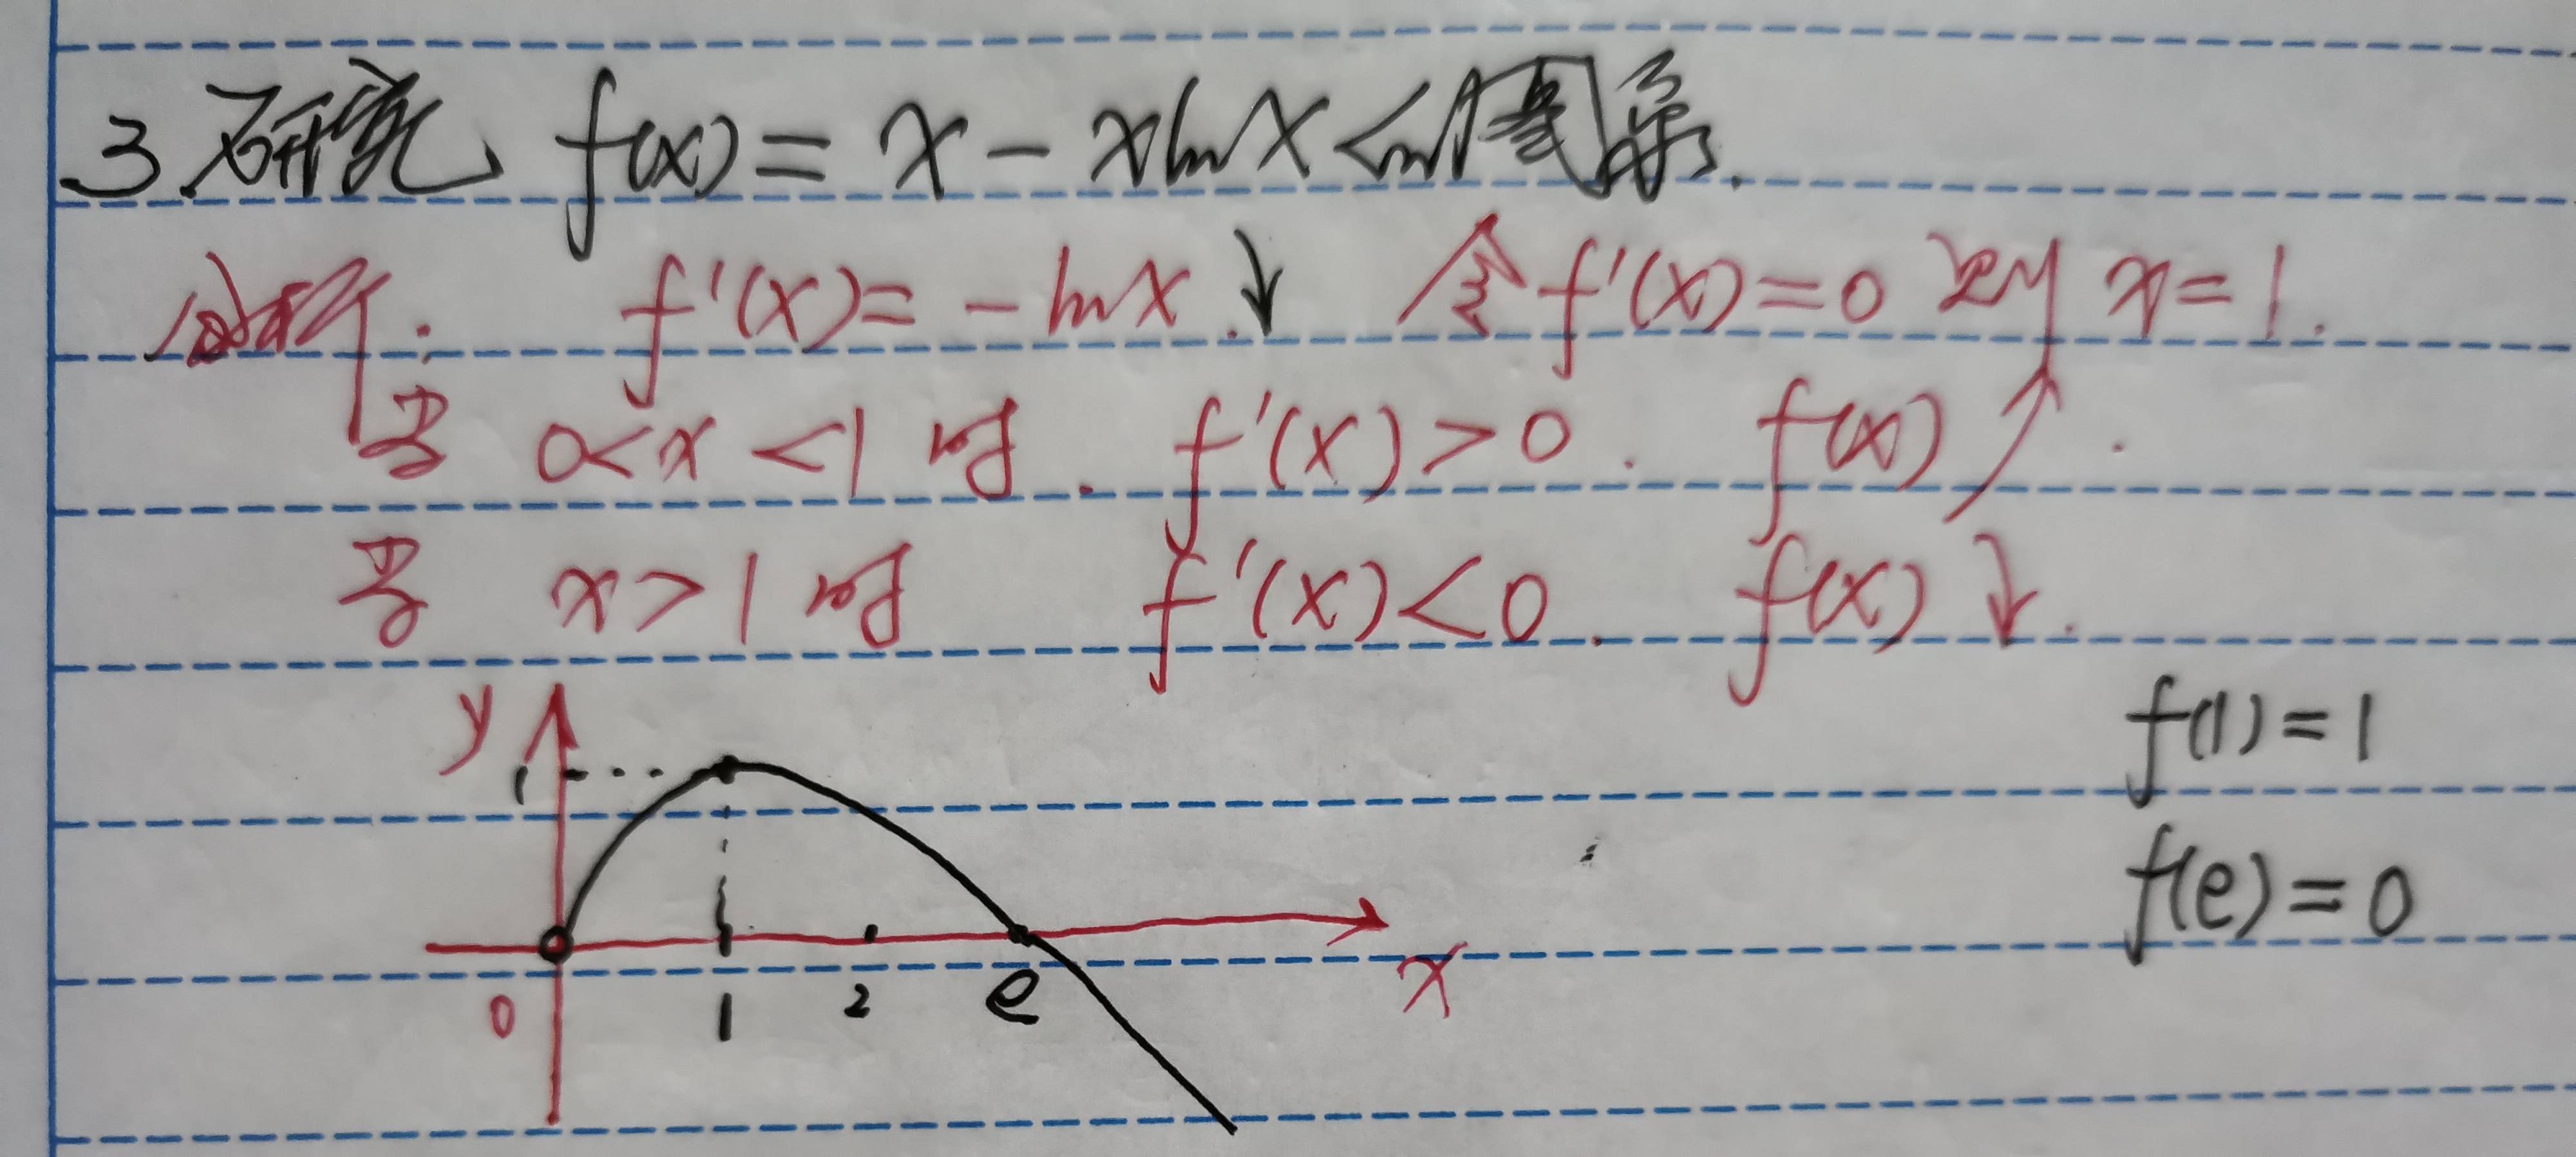 3.研究 f(x)=x-xlnx的图象.
分析: f'(x)=-lnx.↓ 令f'(x)=0则x=1.
当 0<x<1时. f'(x)>0. f(x)↗.
当 x>1时 f'(x)<0. f(x)↓.
f(1)=1
f(e)=0
y
1
0
1
2
e
x